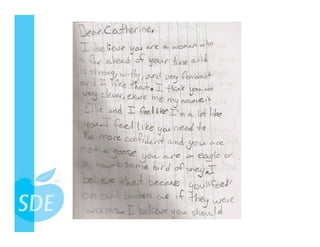 Dear Catherine,
I believe you are a women who
is far ahead of your time and
is strong, witty, and very feminist
and I like that. I think you are
very clever, excure me my name is
Elle and I feel like I'm a lot like
you. I feel like you need to
be more confident and you are
not a goose you are a eagle or
a awesome bird of prey. I
believe that because you feed
on evil suiters as if they were
worms. I believe you should
SDE